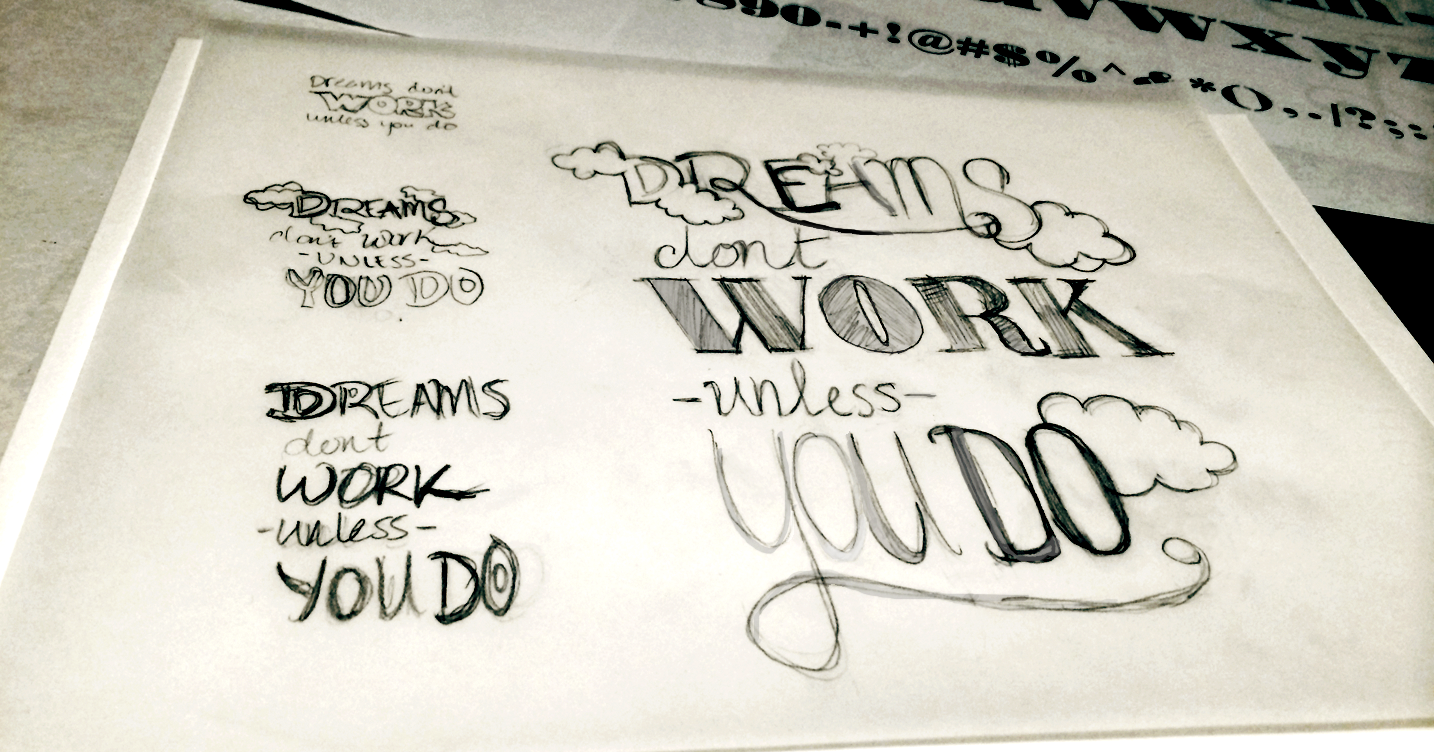 vwxyz
7890-+!@#$%^&*(),.|?;:
Dreams dont
WORK
unless you do
DREAMS
don't work
-UNLESS-
YOU DO
DREAMS
dont
WORK
-unless-
YOU DO
DREAMS
dont
WORK
-unless-
YOU DO